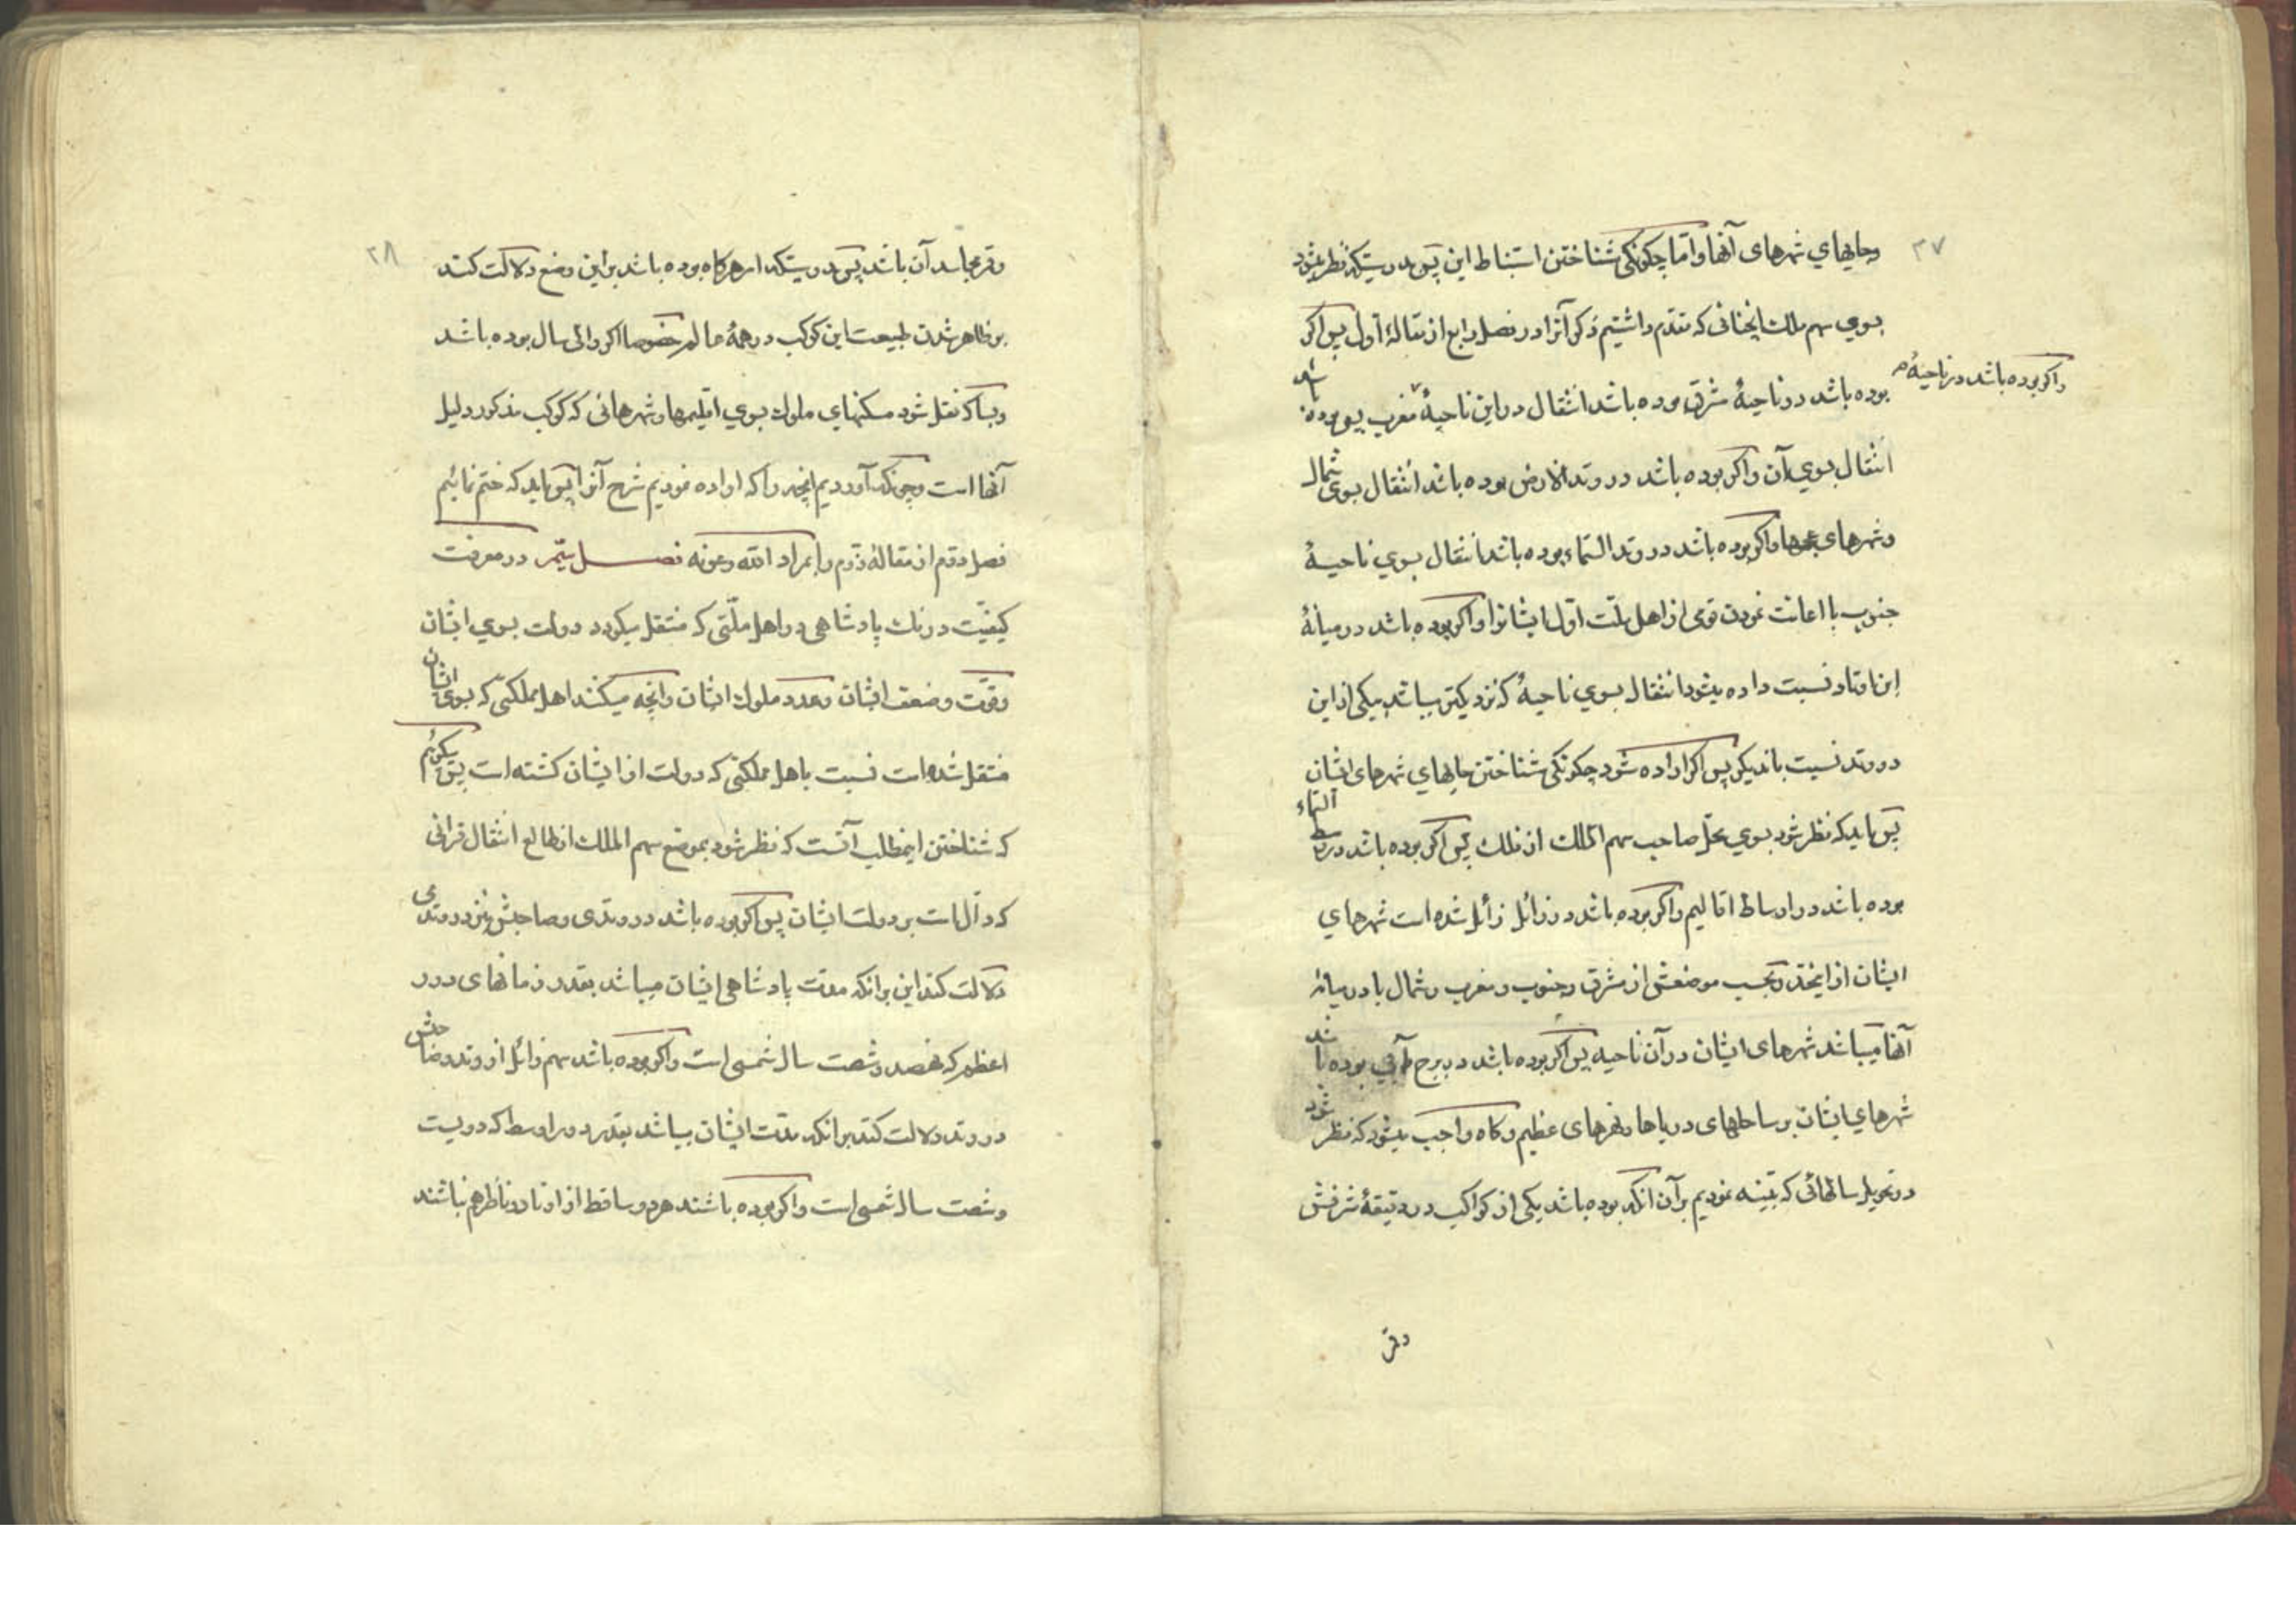 ۳۷
وجایهای شهرهای آنها واما چکونکی شناختن استنباط این پس بدرستیکه نظر میشود
بسوی سهم ملک ایخنانی که مقدم داشتیم ذکر آنرا در فصل رابع از مقالهٔ اول پس اکر
بوده باشد در ناحیهٔ مشرق بوده باشد انتقال در این ناحیهٔ مغرب پس بوده باشد
واکر بوده باشد در ناحیهٔ
انتقال بسوی آن واکر بوده باشد در وتد الارض بوده باشد انتقال بسوی شمال
وشهرهای واکر بوده باشد در وتد السماء بوده باشد انتقال بسوی ناحیهٔ
جنوب با اعانت نمودن قومی از اهل ملت اول ایشانرا واکر بوده باشد در میانهٔ
این اوتاد نسبت داده میشود انتقال بسوی ناحیهٔ که نزدیکتر میباشد بیکی از این
دو وتد نسبت باندیکر پس اکر اراده شود چکونکی شناختن جایهای شهرهای ایشان
پس باید که نظر شود بسوی محل صاحب سهم الملک از فلک پس اکر بوده باشد در وسط السماء
بوده باشد در اوساط اقالیم واکر بوده باشد در زائل زائل شده است شهرهای
ایشان از اینحد وبحسب موضعش از مشرق وجنوب ومغرب وشمال یا در میانهٔ
آنها میباشد شهرهای ایشان در آن ناحیه پس اکر بوده باشد در برج آبی بوده باشد
شهرهای ایشان بر ساحلهای دریاها ونهرهای عظیم وکاه واجب میشود که نظر شود
در تحویل سالهائی که تنبیه نمودیم بر آن انکه بوده باشد یکی از کواکب در دقیقهٔ شرفش
وقر
۳۸
وقمر مجاسد آن باشد پس بدرستیکه امر هرکاه بوده باشد بر این وضع دلالت کند
بر ظاهر شدن طبیعت این کوکب در همهٔ عالم خصوصا اکر والی سال بوده باشد
وبسا که نقل شود مسکنهای ملوک بسوی اقلیمها وشهرهائی که کوکب مذکور دلیل
آنها است وچونکه آوردیم انچه را که اراده نمودیم شرح آنرا پس باید که ختم نمائیم
فصل دوم از مقالهٔ دوم را بمراد الله وعونه فصل سیم در معرفت
کیفیت درنک پادشاهی در اهل ملتی که منتقل میکردد دولت بسوی ایشان
وقوت وضعف ایشان وعدد ملوک ایشان وانچه میکنند اهل مملکتی که بسوی ایشان
منتقل شده است نسبت باهل مملکتی که دولت از ایشان کشته است پس میکوئیم
که شناختن اینمطلب آنست که نظر شود بموضع سهم الملک از طالع انتقال قرانی
که دال است بر دولت ایشان پس اکر بوده باشد در وتدی وصاحبش نیز در وتدی
دلالت کند این برانکه مدت پادشاهی ایشان میباشد بقدر زمانهای دور
اعظم که سیصد وشصت سال شمسی است واکر بوده باشد سهم زائل از وتد وصاحبش
در وتد دلالت کند برانکه مدت ایشان میباشد بقدر دور اوسط که دویست
وشصت سال شمسی است واکر بوده باشند هر دو ساقط از اوتاد وناظر هم نباشند